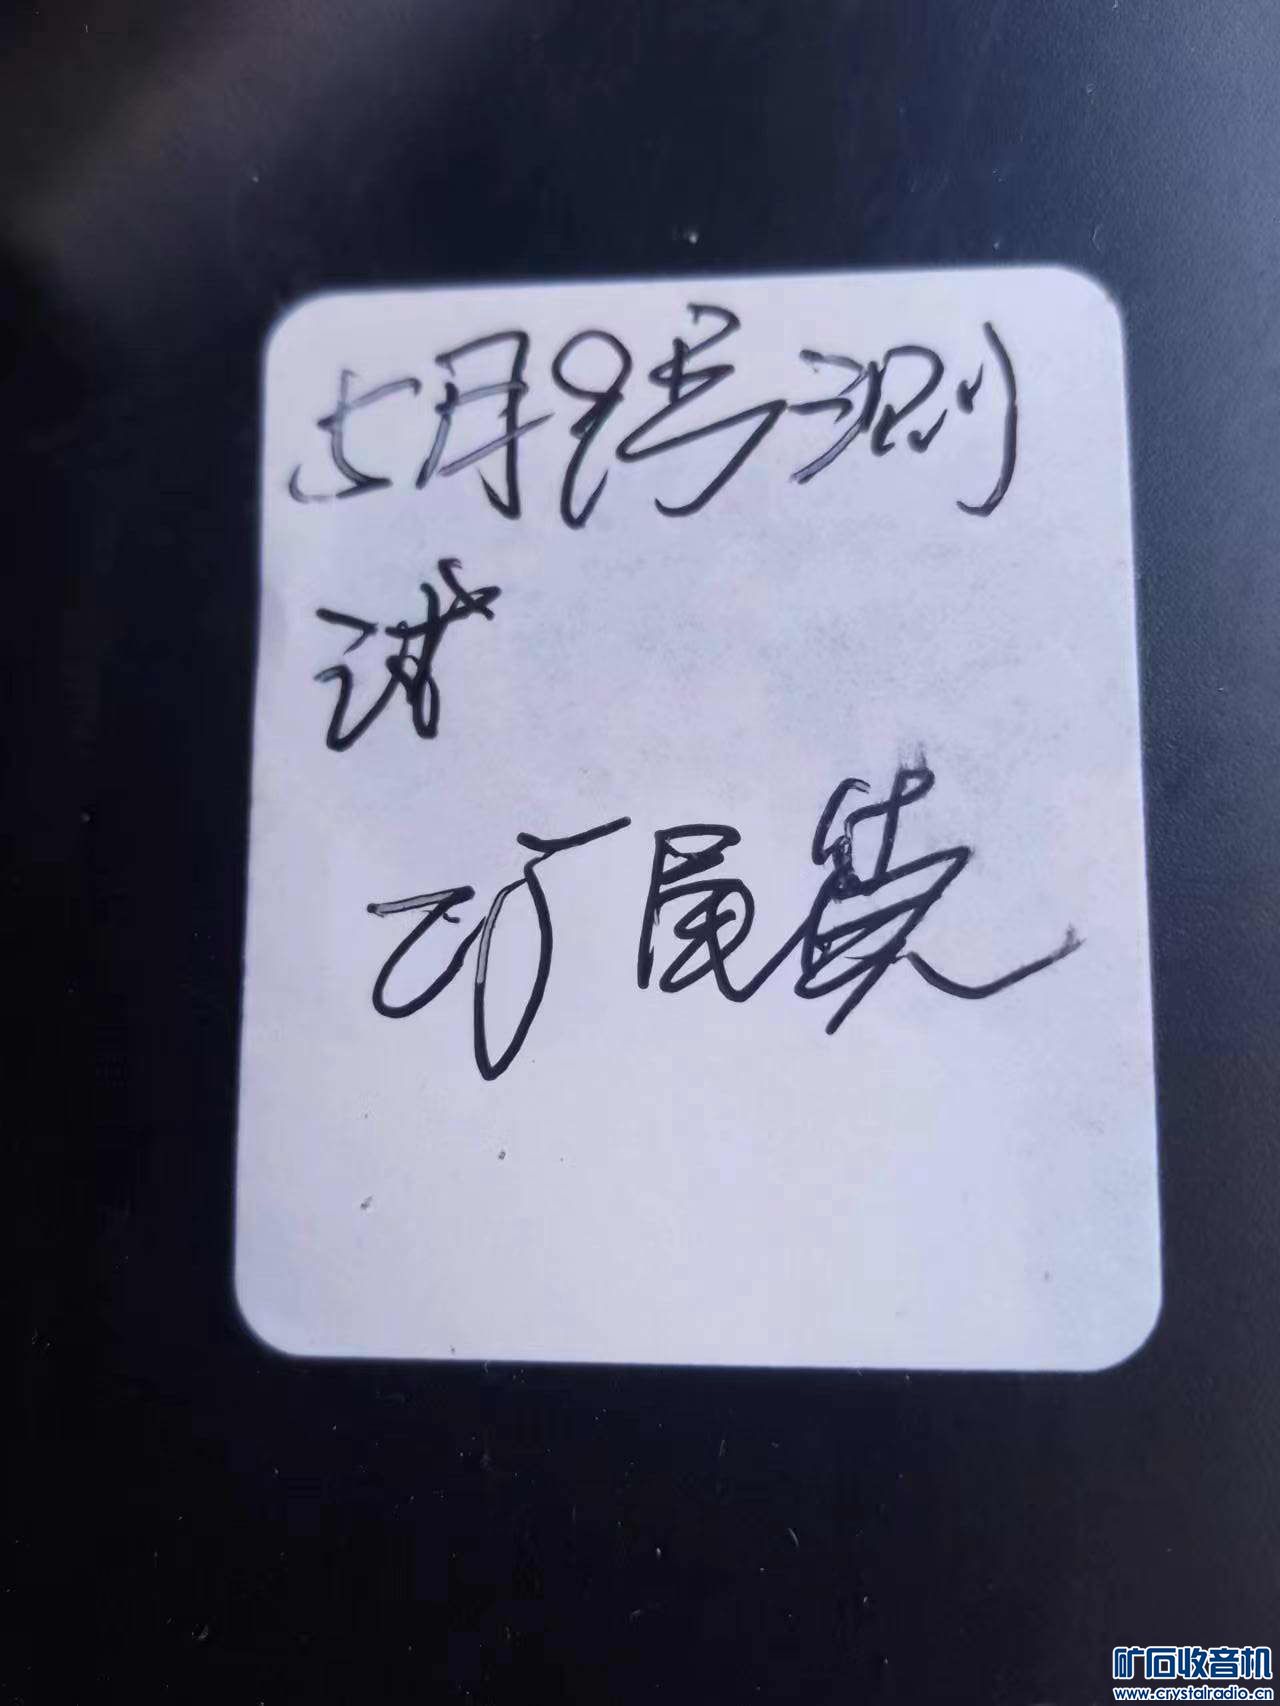 5月9号测
试
矿
矿石收音机
www.crystalradio.cn